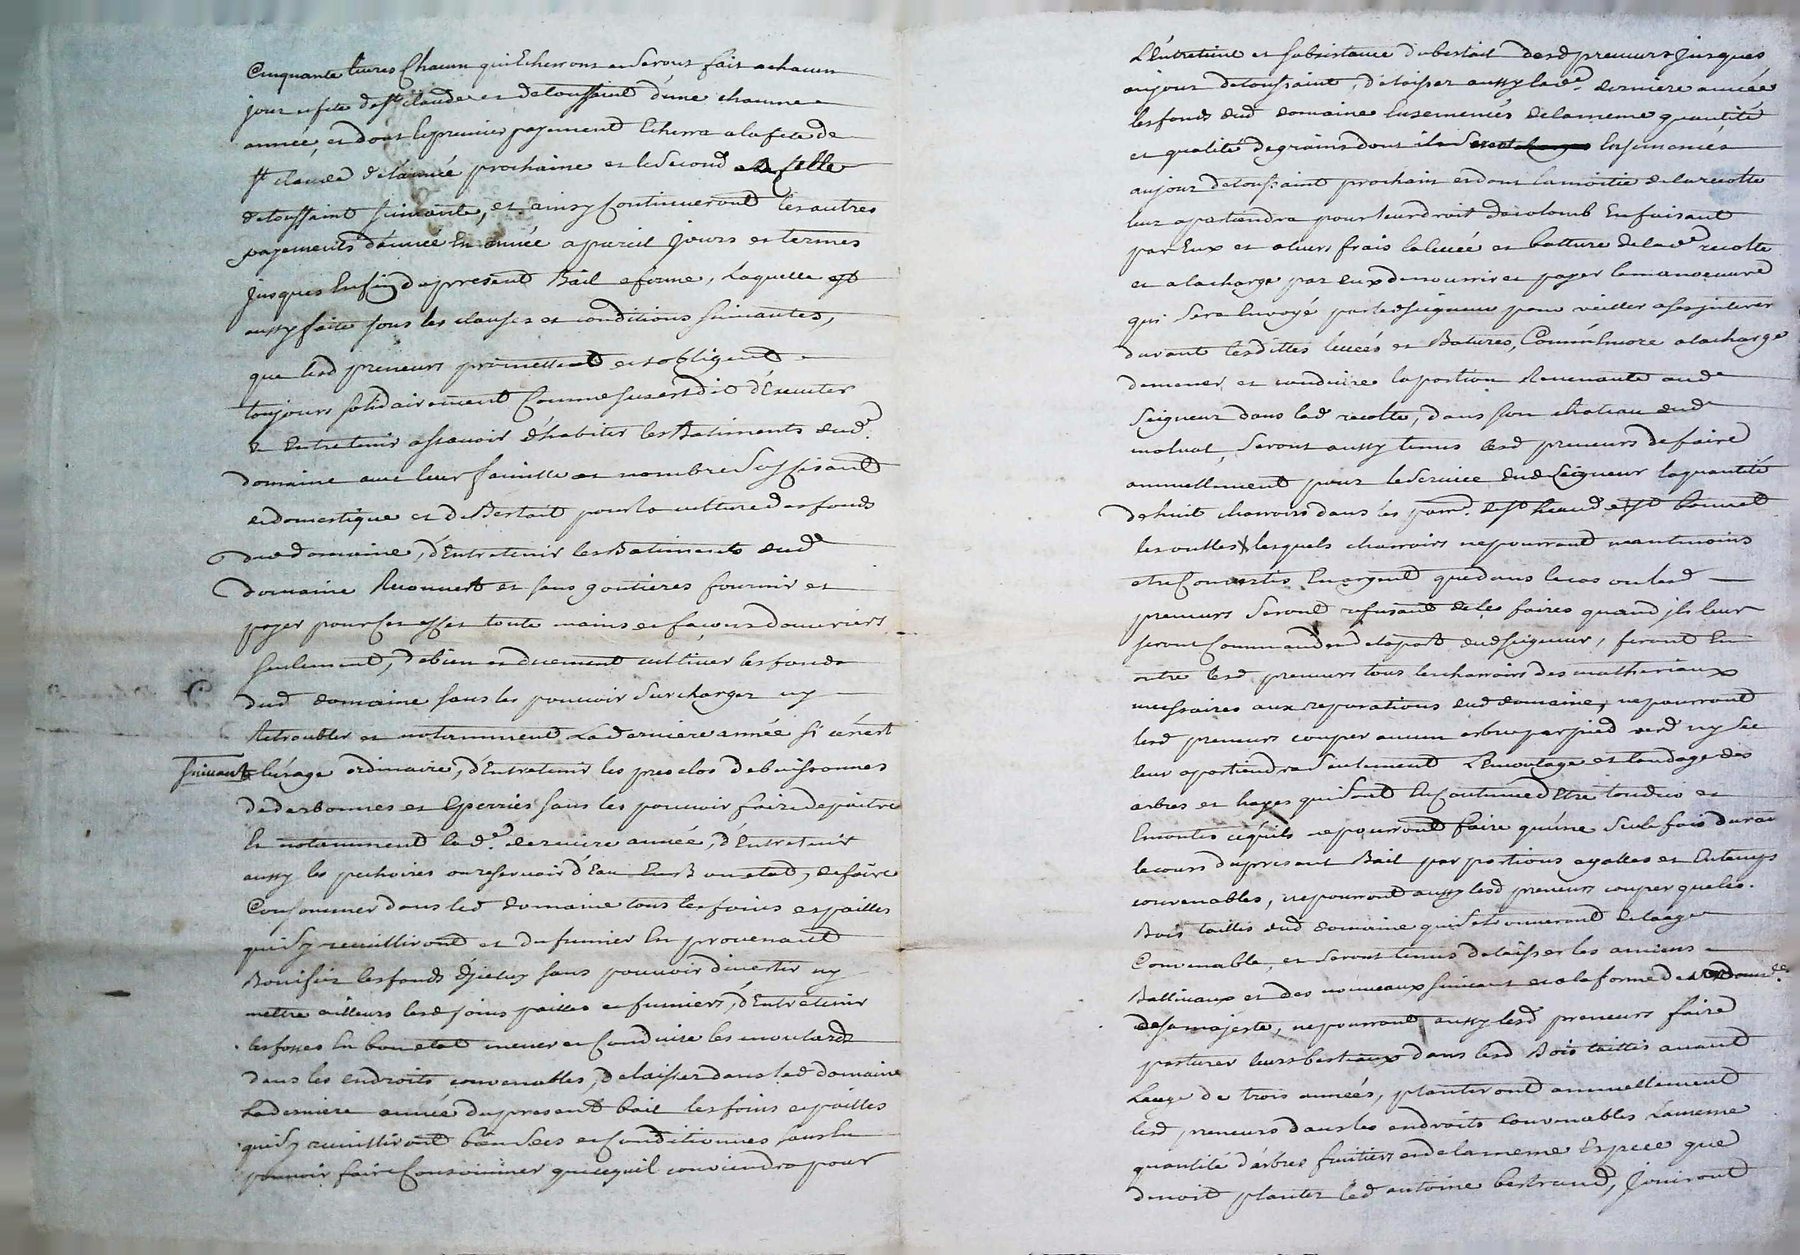 Cinquante livres Chacun qui Echerront et Seront fait a chacun
jour et fete de st claude et de toussaint d'une chacune
année, et dont le premier payement Echerra a la fete de
st claude de l'année prochaine et le Second a celle
de toussaint suivante, et ainsy Continueront les autres
payements d'année En année a pareil jours et termes
jusques En fin du present Bail a ferme, Laquelle est
aussy faite sous les clauses et conditions suivantes,
que lesd preneurs promettent et s'obligent
toujours solidairement Comme susest dit d'Executer
et Entretenir assavoir d'habiter les Batiments dud.
domaine avec leur famille et nombre Suffisant
de domestique et de Bestail pour la culture des fonds
dud domaine, d'Entretenir les Batiments dud
domaine Recouvert et sans goutieres fournir et
payer pour Cet effet toute mains et facons d'ouvriers
seulement, de bien et duement cultiver les fonds
dud domaine sans les pouvoir Surcharger ny
Retroubler et notamment La derniere année Si ce n'est
suivant l'usage ordinaire, d'Entretenir les pres clos de buissonnes
de darbonnes et Epierrés sans les pouvoir faire depaitre
Et notamment lad. derniere année, d'Entretenir
aussy les pechoires ou reservoir d'Eau En B on etat, de faire
Consommer dans led domaine tous les foins et pailles
qui S'y recuilliront et du fumier En provenant
Bonifier les fonds d'jceluy sans pouvoir divertir ny
mettre ailleurs lesd foins pailles et fumiers, d'Entretenir
les fosses En bon etat mener et Conduire les moulards
dans les endroits convenables, de laisser dans led domaine
La derniere année du present bail les foins et pailles
qui S'y recuilliront bien Secs et Conditionnés sans En
pouvoir faire Consommer que ce qu'il conviendra pour
L'Entretient et subsistance du bestail desd preneurs jusques
au jour de toussaint, de laisser aussy lad. derniere année
les fonds dud domaine Ensemencés de la meme quantité
et qualité de grains dont Ensemencés
au jour de toussaint prochain et dont la moitie de la recolte
leur apartiendra pour leur droit de colomb En faisant
par Eux et a leurs frais la levée et batture de lad. recolte
et a la charge par Eux de nourrir et payer le manoeuvre
qui Sera Envoyé par led seigneur pour veiller a ses jnterets
durant lesdittes levées et Batures, Comm'Encore a la charge
de mener et conduire la portion Revenante aud
Seigneur dans lad recolte, dans son chateau dud
molvot, Seront aussy tenus lesd preneurs de faire
annuellement pour le Service dud Seigneur la quantité
de huit charrois dans les
lesquels charrois ne pourront neantmoins
etre Convertis En argent que dans le cas ou lesd
preneurs Seront refusant de les faires quand jls leur
seront Commandés de la part dud seigneur, feront En
outre lesd preneurs tous les charrois des matheriaux
necessaires aux reparations dud domaine, ne pourront
lesd preneurs couper aucun arbre par pied verd ny sec
leur apartiendra Seulement L'Emontage et tondage des
arbres et hayes qui Sont En Coutume d'Etre tondus et
Emontes ce qu'ils ne pourront faire qu'une Seule fois durant
le cours du present Bail par portions egalles et En temps
convenables, ne pourront aussy lesd preneurs couper que les
Bois taillis dud domaine qui Se trouveront de l'aage
Convenable, et Seront tenus de laisser les anciens
Balliveaux et des nouveaux suivant et a la forme de
de sa majeste, ne pourront aussy lesd preneurs faire
pasturer leurs bestiaux dans lesd Bois taillis avant
L'aage de trois années, planteront annuellement
lesd preneurs dans les endroits convenables La meme
quantité d'arbres fruitiers et de la meme Espece que
devoit planter led antoine bertrand, Jouiront